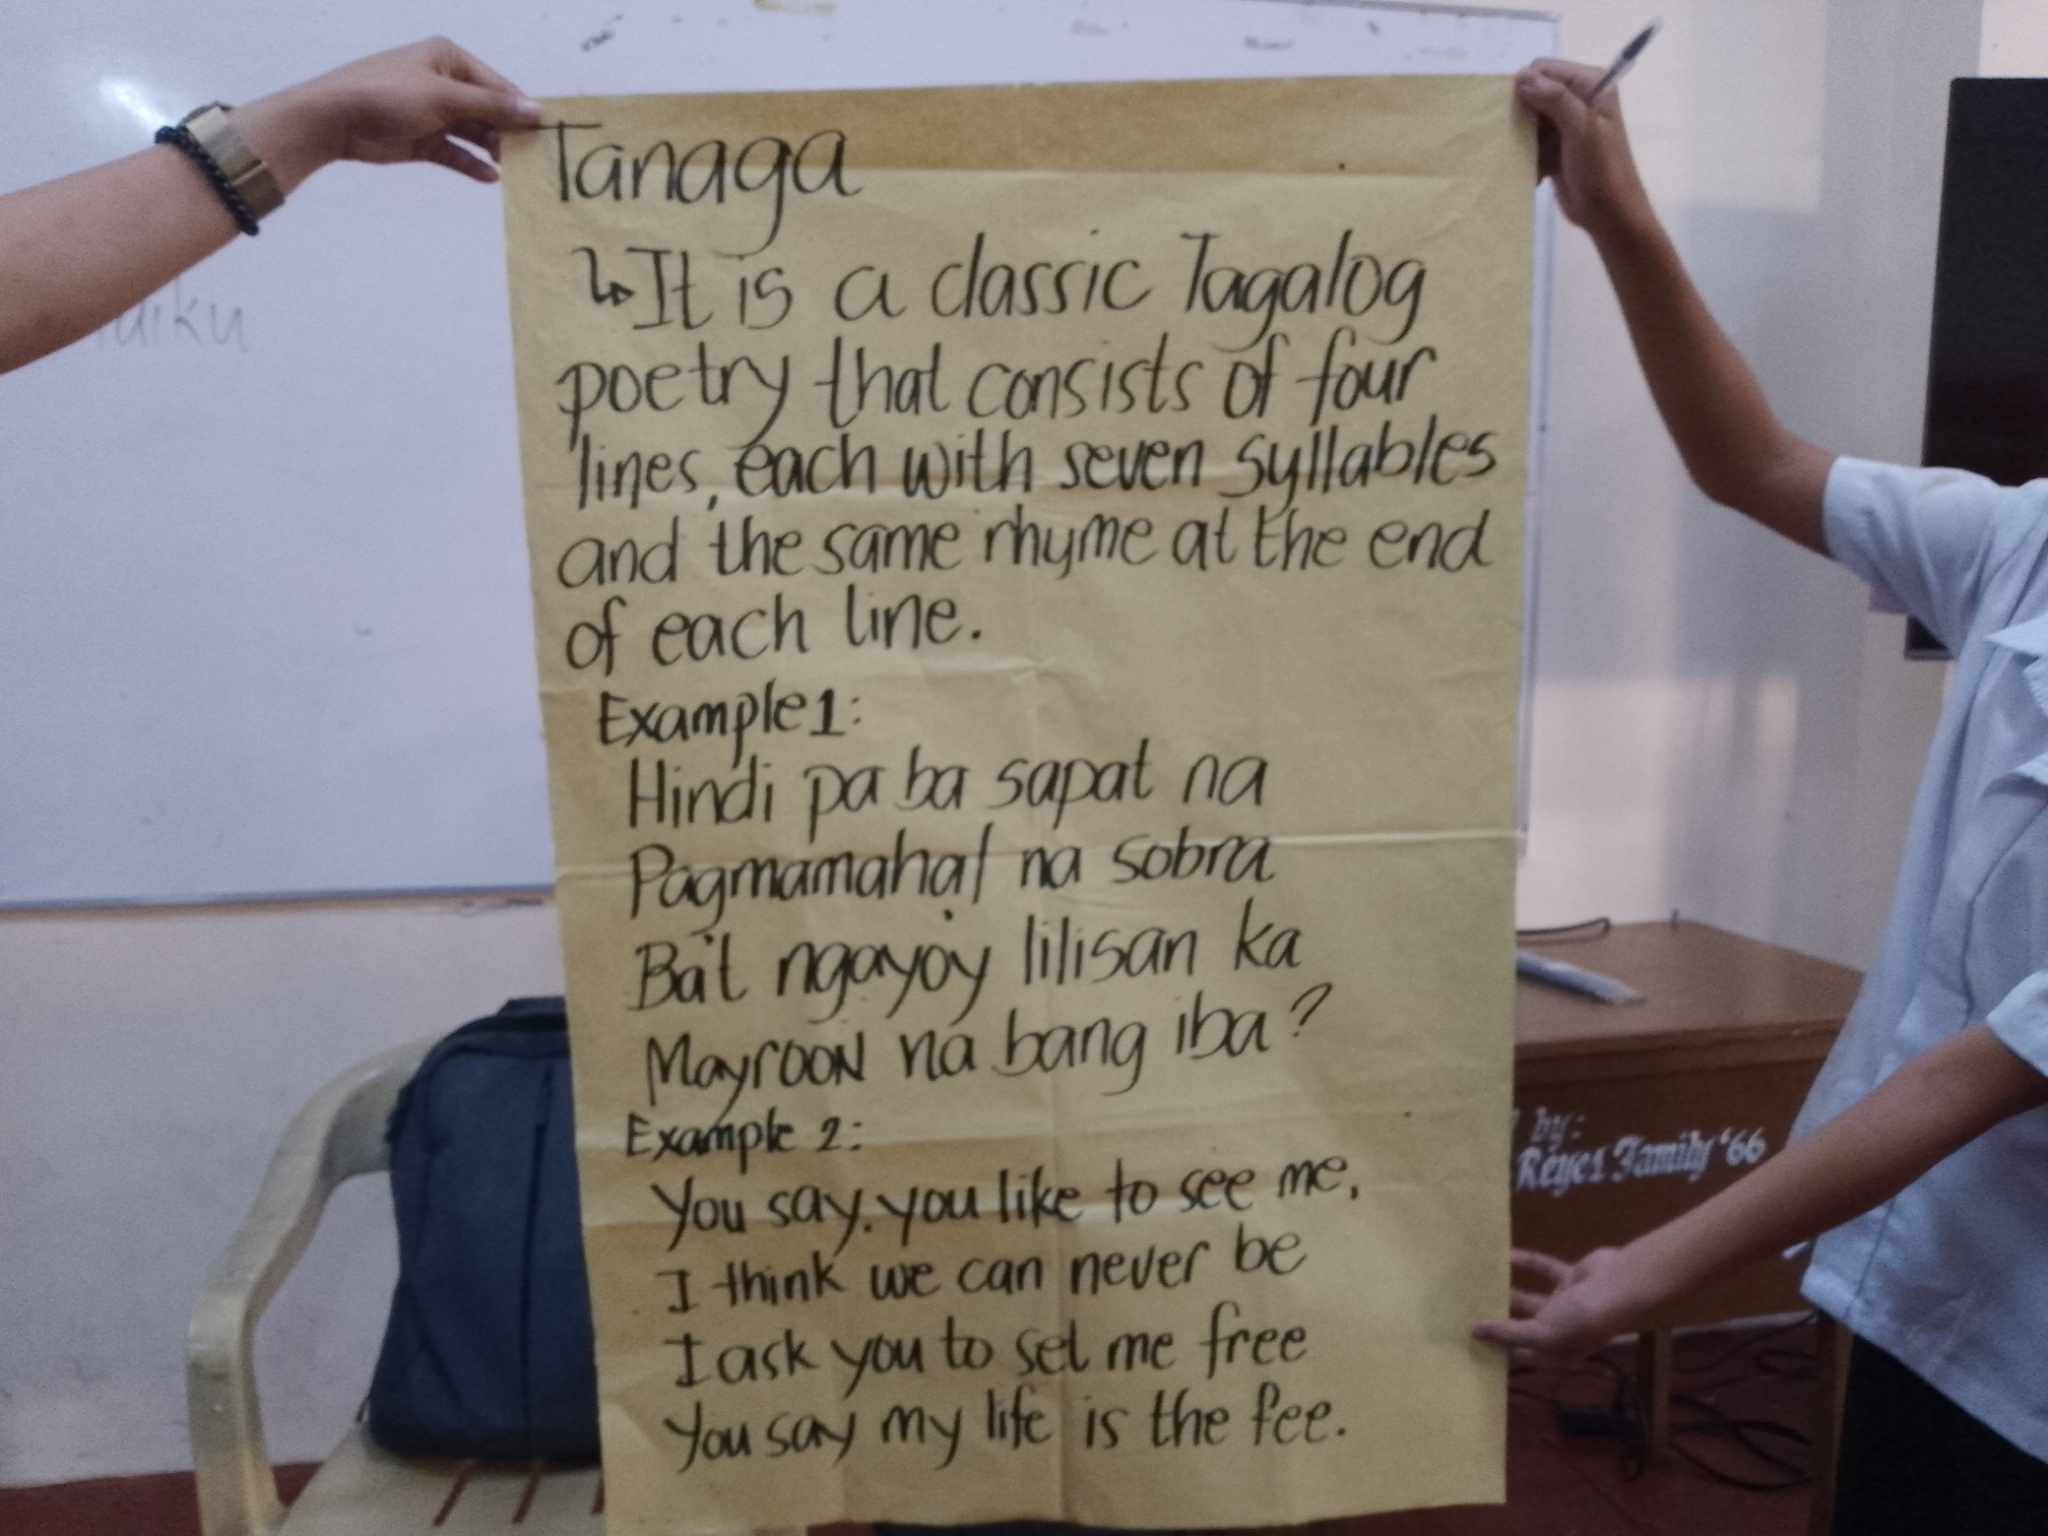 Tanaga
↳It is a classic Tagalog
poetry that consists of four
lines, each with seven syllables
and the same rhyme at the end
of each line.
Example 1:
Hindi pa ba sapat na
Pagmamahal na sobra
Ba't ngayoy lilisan ka
Mayroon na bang iba?
Example 2:
You say. you like to see me,
I think we can never be
I ask you to set me free
You say my life is the fee.
by:
Reyes Family '66